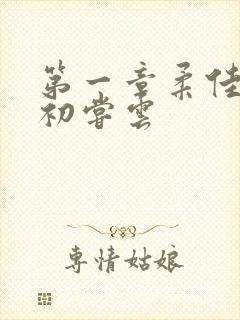 第一章柔佳
初嘗雲
專情姑娘